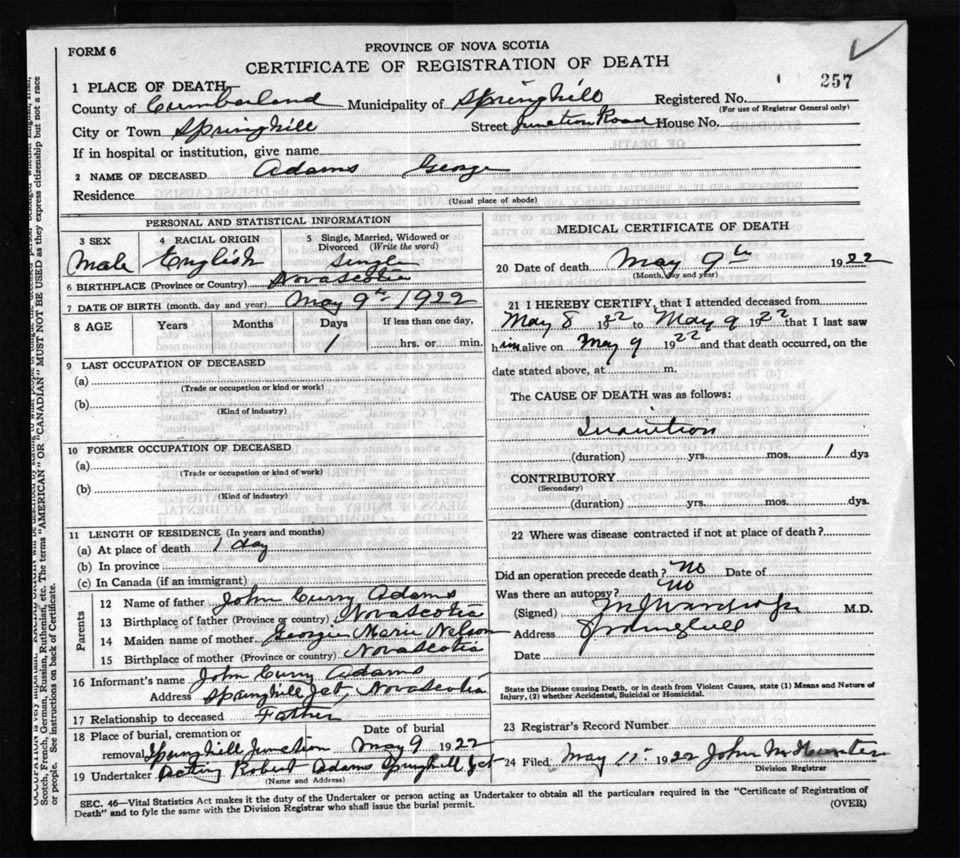 FORM 6
PROVINCE OF NOVA SCOTIA
CERTIFICATE OF REGISTRATION OF DEATH
257
1 PLACE OF DEATH
County of Cumberland Municipality of Springhill Registered No.
(For use of Registrar General only)
City or Town Springhill Street Junction Road House No.
If in hospital or institution, give name
2 NAME OF DECEASED Adams George
Residence
(Usual place of abode)
PERSONAL AND STATISTICAL INFORMATION
3 SEX 4 RACIAL ORIGIN 5 Single, Married, Widowed or Divorced (Write the word)
Male English Single
6 BIRTHPLACE (Province or Country) Nova Scotia
7 DATE OF BIRTH (month, day and year) May 9th 1922
8 AGE Years Months Days If less than one day,
1 hrs. or min.
9 LAST OCCUPATION OF DECEASED
(a)
(Trade or occupation or kind or work)
(b)
(Kind of industry)
10 FORMER OCCUPATION OF DECEASED
(a)
(Trade or occupation or kind of work)
(b)
(Kind of industry)
11 LENGTH OF RESIDENCE (In years and months)
(a) At place of death 1 day
(b) In province
(c) In Canada (if an immigrant)
Parents
12 Name of father John Curry Adams
13 Birthplace of father (Province or country) Nova Scotia
14 Maiden name of mother Georgie Marie Nelson
15 Birthplace of mother (Province or country) Nova Scotia
16 Informant's name John Curry Adams
Address Springhill Jct, Nova Scotia
17 Relationship to deceased Father
18 Place of burial, cremation or Date of burial
removal Springhill Junction May 9 1922
19 Undertaker Acting Robert Adams Springhill Jct
(Name and Address)
MEDICAL CERTIFICATE OF DEATH
20 Date of death May 9th 1922
(Month, day and year)
21 I HEREBY CERTIFY, that I attended deceased from
May 8 1922 to May 9 1922 that I last saw
him alive on May 9 1922 and that death occurred, on the
date stated above, at m.
The CAUSE OF DEATH was as follows:
Inanition
(duration) yrs. mos. 1 dys
CONTRIBUTORY
(Secondary)
(duration) yrs. mos. dys.
22 Where was disease contracted if not at place of death?
Did an operation precede death? No Date of
Was there an autopsy? No
(Signed) M.D.
Address Springhill
Date
State the Disease causing Death, or in death from Violent Causes, state (1) Means and Nature of
Injury, (2) whether Accidental, Suicidal or Homicidal.
23 Registrar's Record Number
24 Filed May 11 1922 John M Hunter
Division Registrar
SEC. 46—Vital Statistics Act makes it the duty of the Undertaker or person acting as Undertaker to obtain all the particulars required in the "Certificate of Registration of
Death" and to fyle the same with the Division Registrar who shall issue the burial permit.
(OVER)
Scotch, French, German, Russian, Ruthenian, etc. The terms "AMERICAN" OR "CANADIAN" MUST NOT BE USED as they express citizenship but not a race
or people. See instructions on back of Certificate.